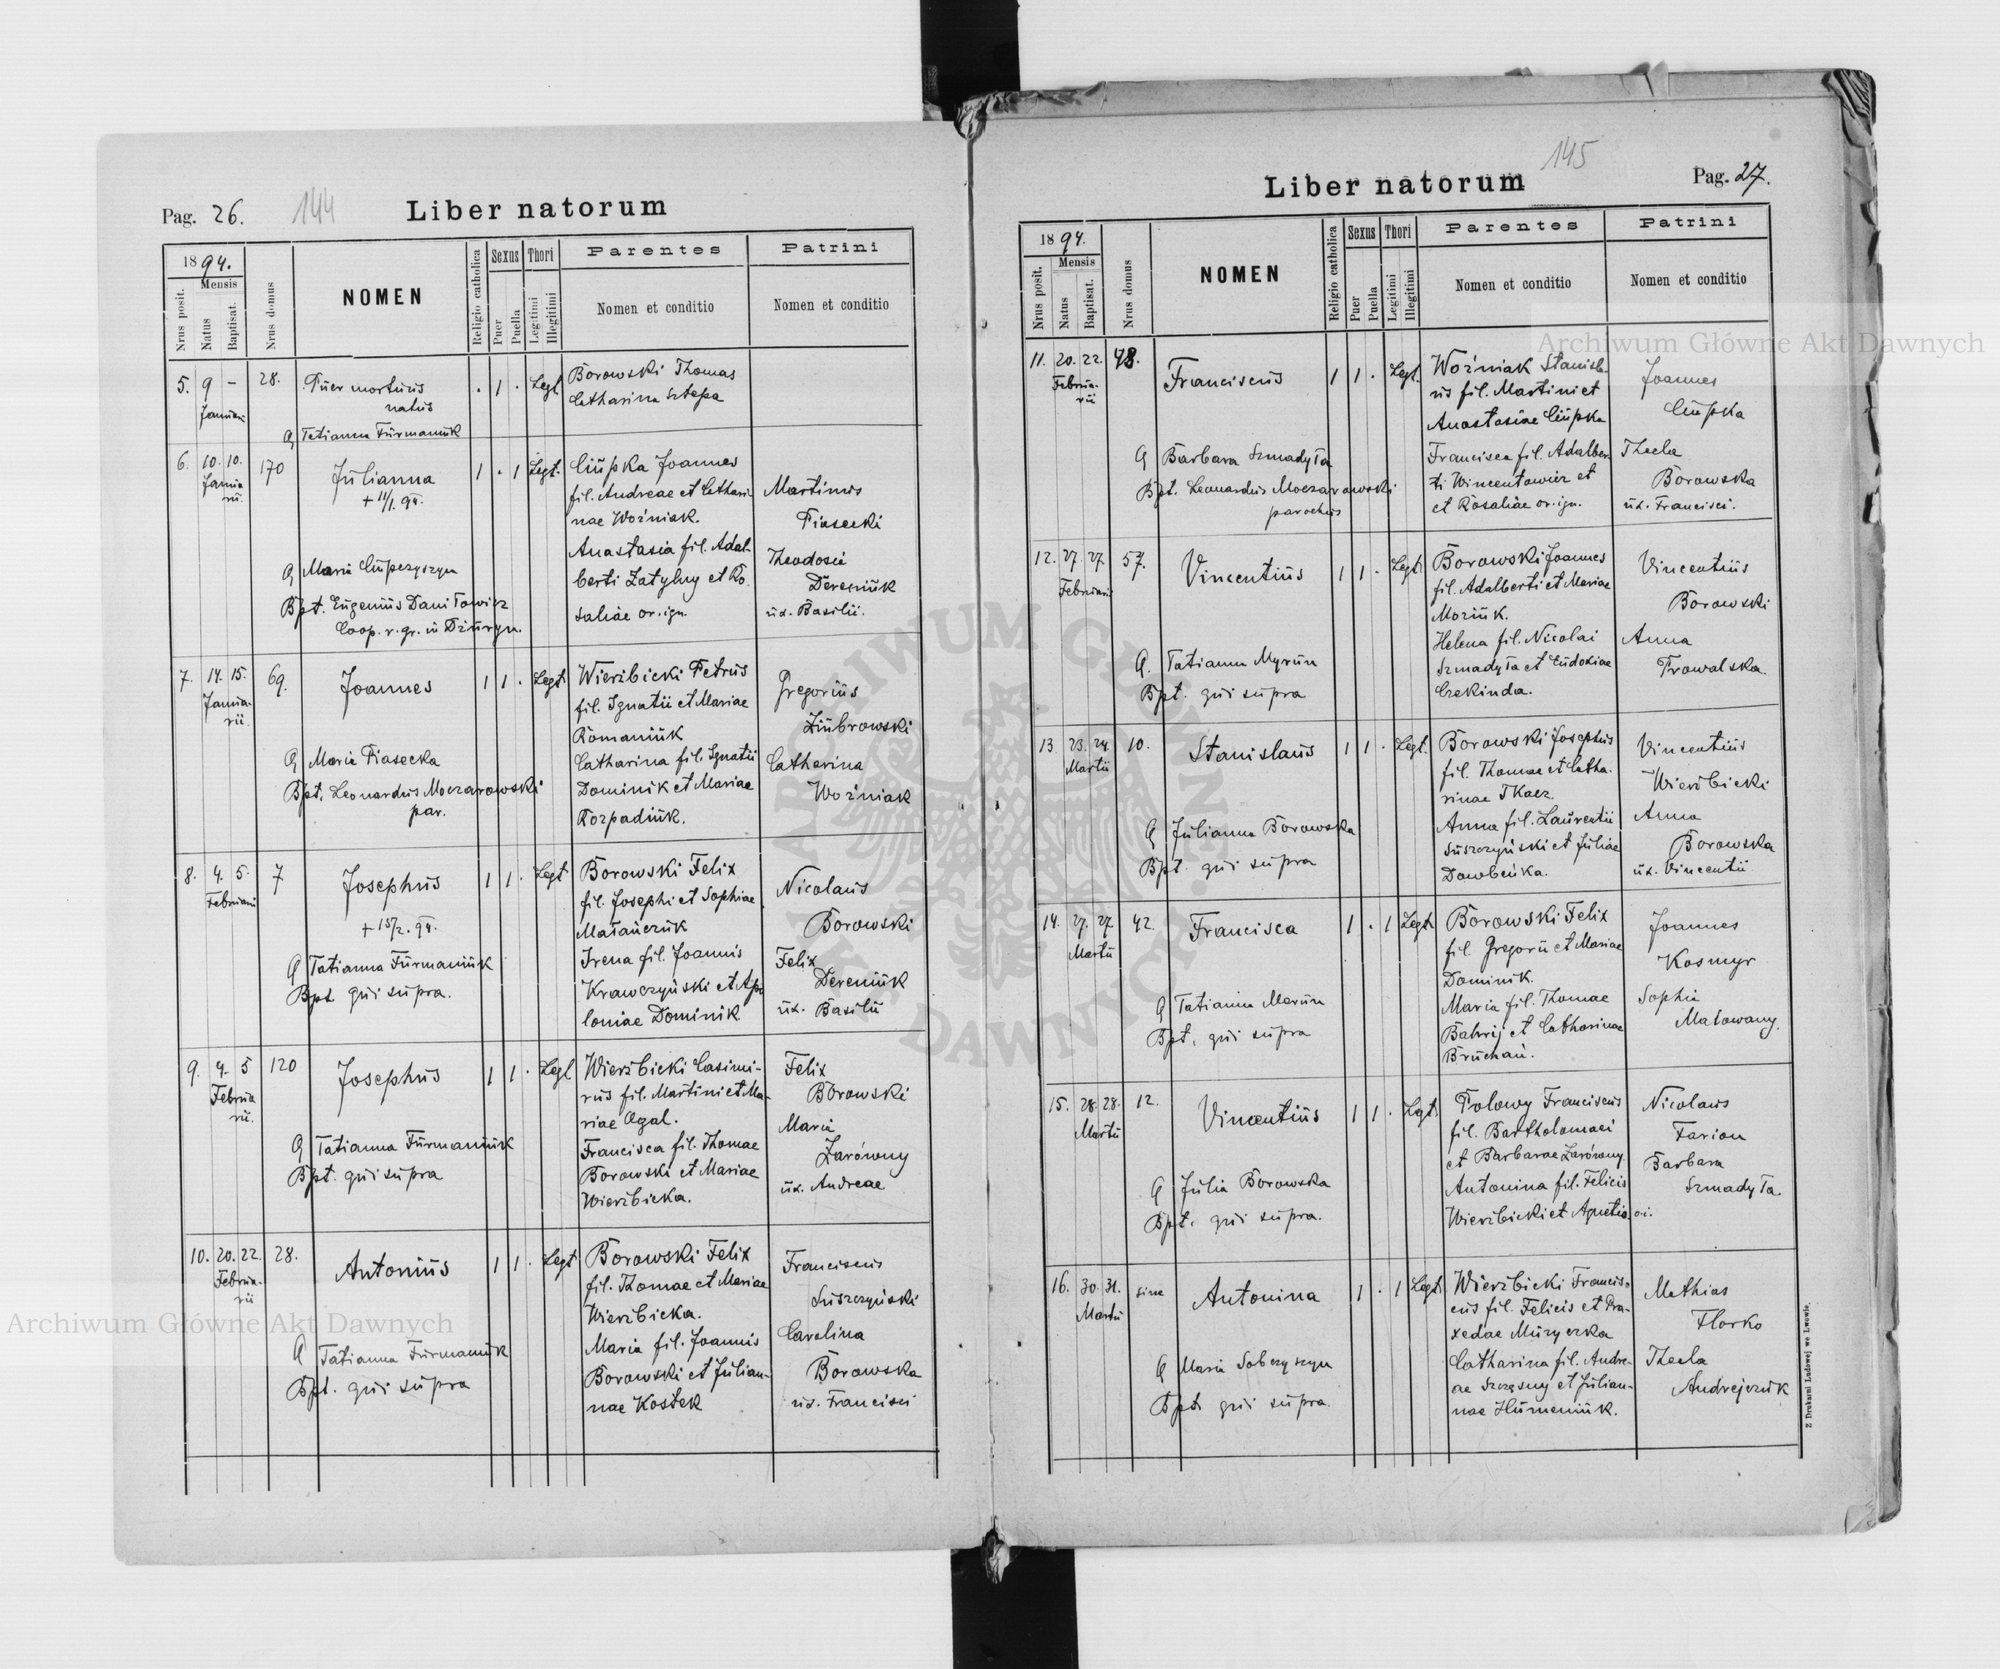 Pag. 26.
144
Liber natorum
1894.
Mensis
Nrus posit.
Natus
Baptisat.
Nrus domus
NOMEN
Religio catholica
Sexus
Puer
Puella
Thori
Legitimi
Illegitimi
Parentes
Nomen et conditio
Patrini
Nomen et conditio
5. 9 – 28. Puer mortuus 1 Legt. Borowski Thomas
Januarii natus Catharina Sztepa
O Tatianna Furmaniuk
6. 10. 10. 170 Julianna 1 . 1 Legt. Ciupka Joannes
Januarii + 11/1. 94. fil. Andreae et Cathari- Martinus
nae Woźniak. Piasecki
Anastasia fil. Adal- Theodosia
O Maria Ciupczyszyn berti Zatylny et Ro- Dereniuk
Bpt. Eugenius Daniłowicz saliae or. ign. ux. Basilii.
Coop. r. gr. in Dżuryn.
7. 14. 15. 69. Joannes 1 1 . Legt. Wierzbicki Petrus Gregorius
Januarii. fil. Ignatii et Mariae Ziubrowski
Romaniuk
O Maria Piasecka Catharina fil. Ignatii Catharina
Bpt. Leonardus Moczarowski Dominik et Mariae Woźniak
par. Korpadiuk.
8. 4. 5. 7 Josephus 1 1 . Legt Borowski Felix Nicolaus
Februarii fil. Josephi et Sophiae Borowski
+ 15/2. 94. Małańczuk
O Tatianna Furmaniuk Irena fil. Joannis Felix
Bpt. qui supra. Krawczyński et Apo- Dereniuk
loniae Dominik. ux. Basilii
9. 4. 5 120 Josephus 1 1 . Legt Wierzbicki Casimi- Felix
Februarii. rus fil. Martini et Ma- Borowski
riae Ogal. Maria
O Tatianna Furmaniuk Francisca fil. Thomae Żarówny
Bpt. qui supra Borowski et Mariae ux. Andreae
Wierzbicka.
10. 20. 22. 28. Antonius 1 1 . Legt Borowski Felix Franciscus
Februarii fil. Thomae et Mariae Suszczyński
Wierzbicka. Carolina
O Tatianna Furmaniuk Maria fil. Joannis Borowska
Bpt. qui supra Borowski et Julian- ux. Francisci
nae Kostek
145
Liber natorum
Pag. 27.
1894.
Mensis
Nrus posit.
Natus
Baptisat.
Nrus domus
NOMEN
Religio catholica
Sexus
Puer
Puella
Thori
Legitimi
Illegitimi
Parentes
Nomen et conditio
Patrini
Nomen et conditio
11. 20. 22. 48. Franciscus 1 1 . Legt. Woźniak Stanisla- Joannes
Februarii us fil. Martini et Ciupka
Anastasiae Ciupka
O Barbara Szmadyła Francisca fil. Adalber- Thecla
Bpt. Leonardus Moczarowski ti Wincentowicz et Borowska
parochus et Rosaliae or. ign. ux. Francisci.
12. 27. 27. 57. Vincentius 1 1 . Legt. Borowski Joannes Vincentius
Februarii fil. Adalberti et Mariae Borowski
Moziuk.
O. Tatianna Myrun Helena fil. Nicolai Anna
Bpt. qui supra Szmadyła et Eudokiae Prowalska
Czekinda.
13. 23. 24. 10. Stanislaus 1 1 . Legt. Borowski Josephus Vincentius
Martii fil. Thomae et Catha- Wierzbicki
rinae Tkacz.
O Julianna Borowska Anna fil. Laurentii Anna
Bpt. qui supra Suszczyński et Juliae Borowska
Dowbeńka. ux. Vincentii
14. 27. 27. 42. Francisca 1 . 1 Legt. Borowski Felix Joannes
Martii fil. Gregorii et Mariae Kosmyr
Dominik.
O Tatianna Merun Maria fil. Thomae Sophia
Bpt. qui supra Bahrij et Catharinae Malowany.
Bruchań.
15. 28. 28. 12. Vincentius 1 1 . Legt. Polowy Franciscus Nicolaus
Martii fil. Bartholomaei Farion
et Barbarae Żarówny Barbara
O Julia Borowska Antonina fil. Felicis Szmadyła
Bpt. qui supra. Wierzbicki et Agnetis o. i.
16. 30. 31. sine Antonina 1 . 1 Legt. Wierzbicki Francis- Mathias
Martii cus fil. Felicis et Pra- Florko
xedae Muzyczka
O Maria Sobczyszyn Catharina fil. Andre- Thecla
Bpt. qui supra. ae Szczęsny et Julian- Andrejczuk
nae Humeniuk.
Z Drukarni Ludowej we Lwowie.
Archiwum Główne Akt Dawnych
Archiwum Główne Akt Dawnych
ARCHIWUM GŁÓWNE AKT DAWNYCH